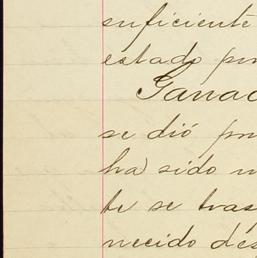 suficiente
estado por
Ganad
se dió por
ha sido n
te se tras
necido des